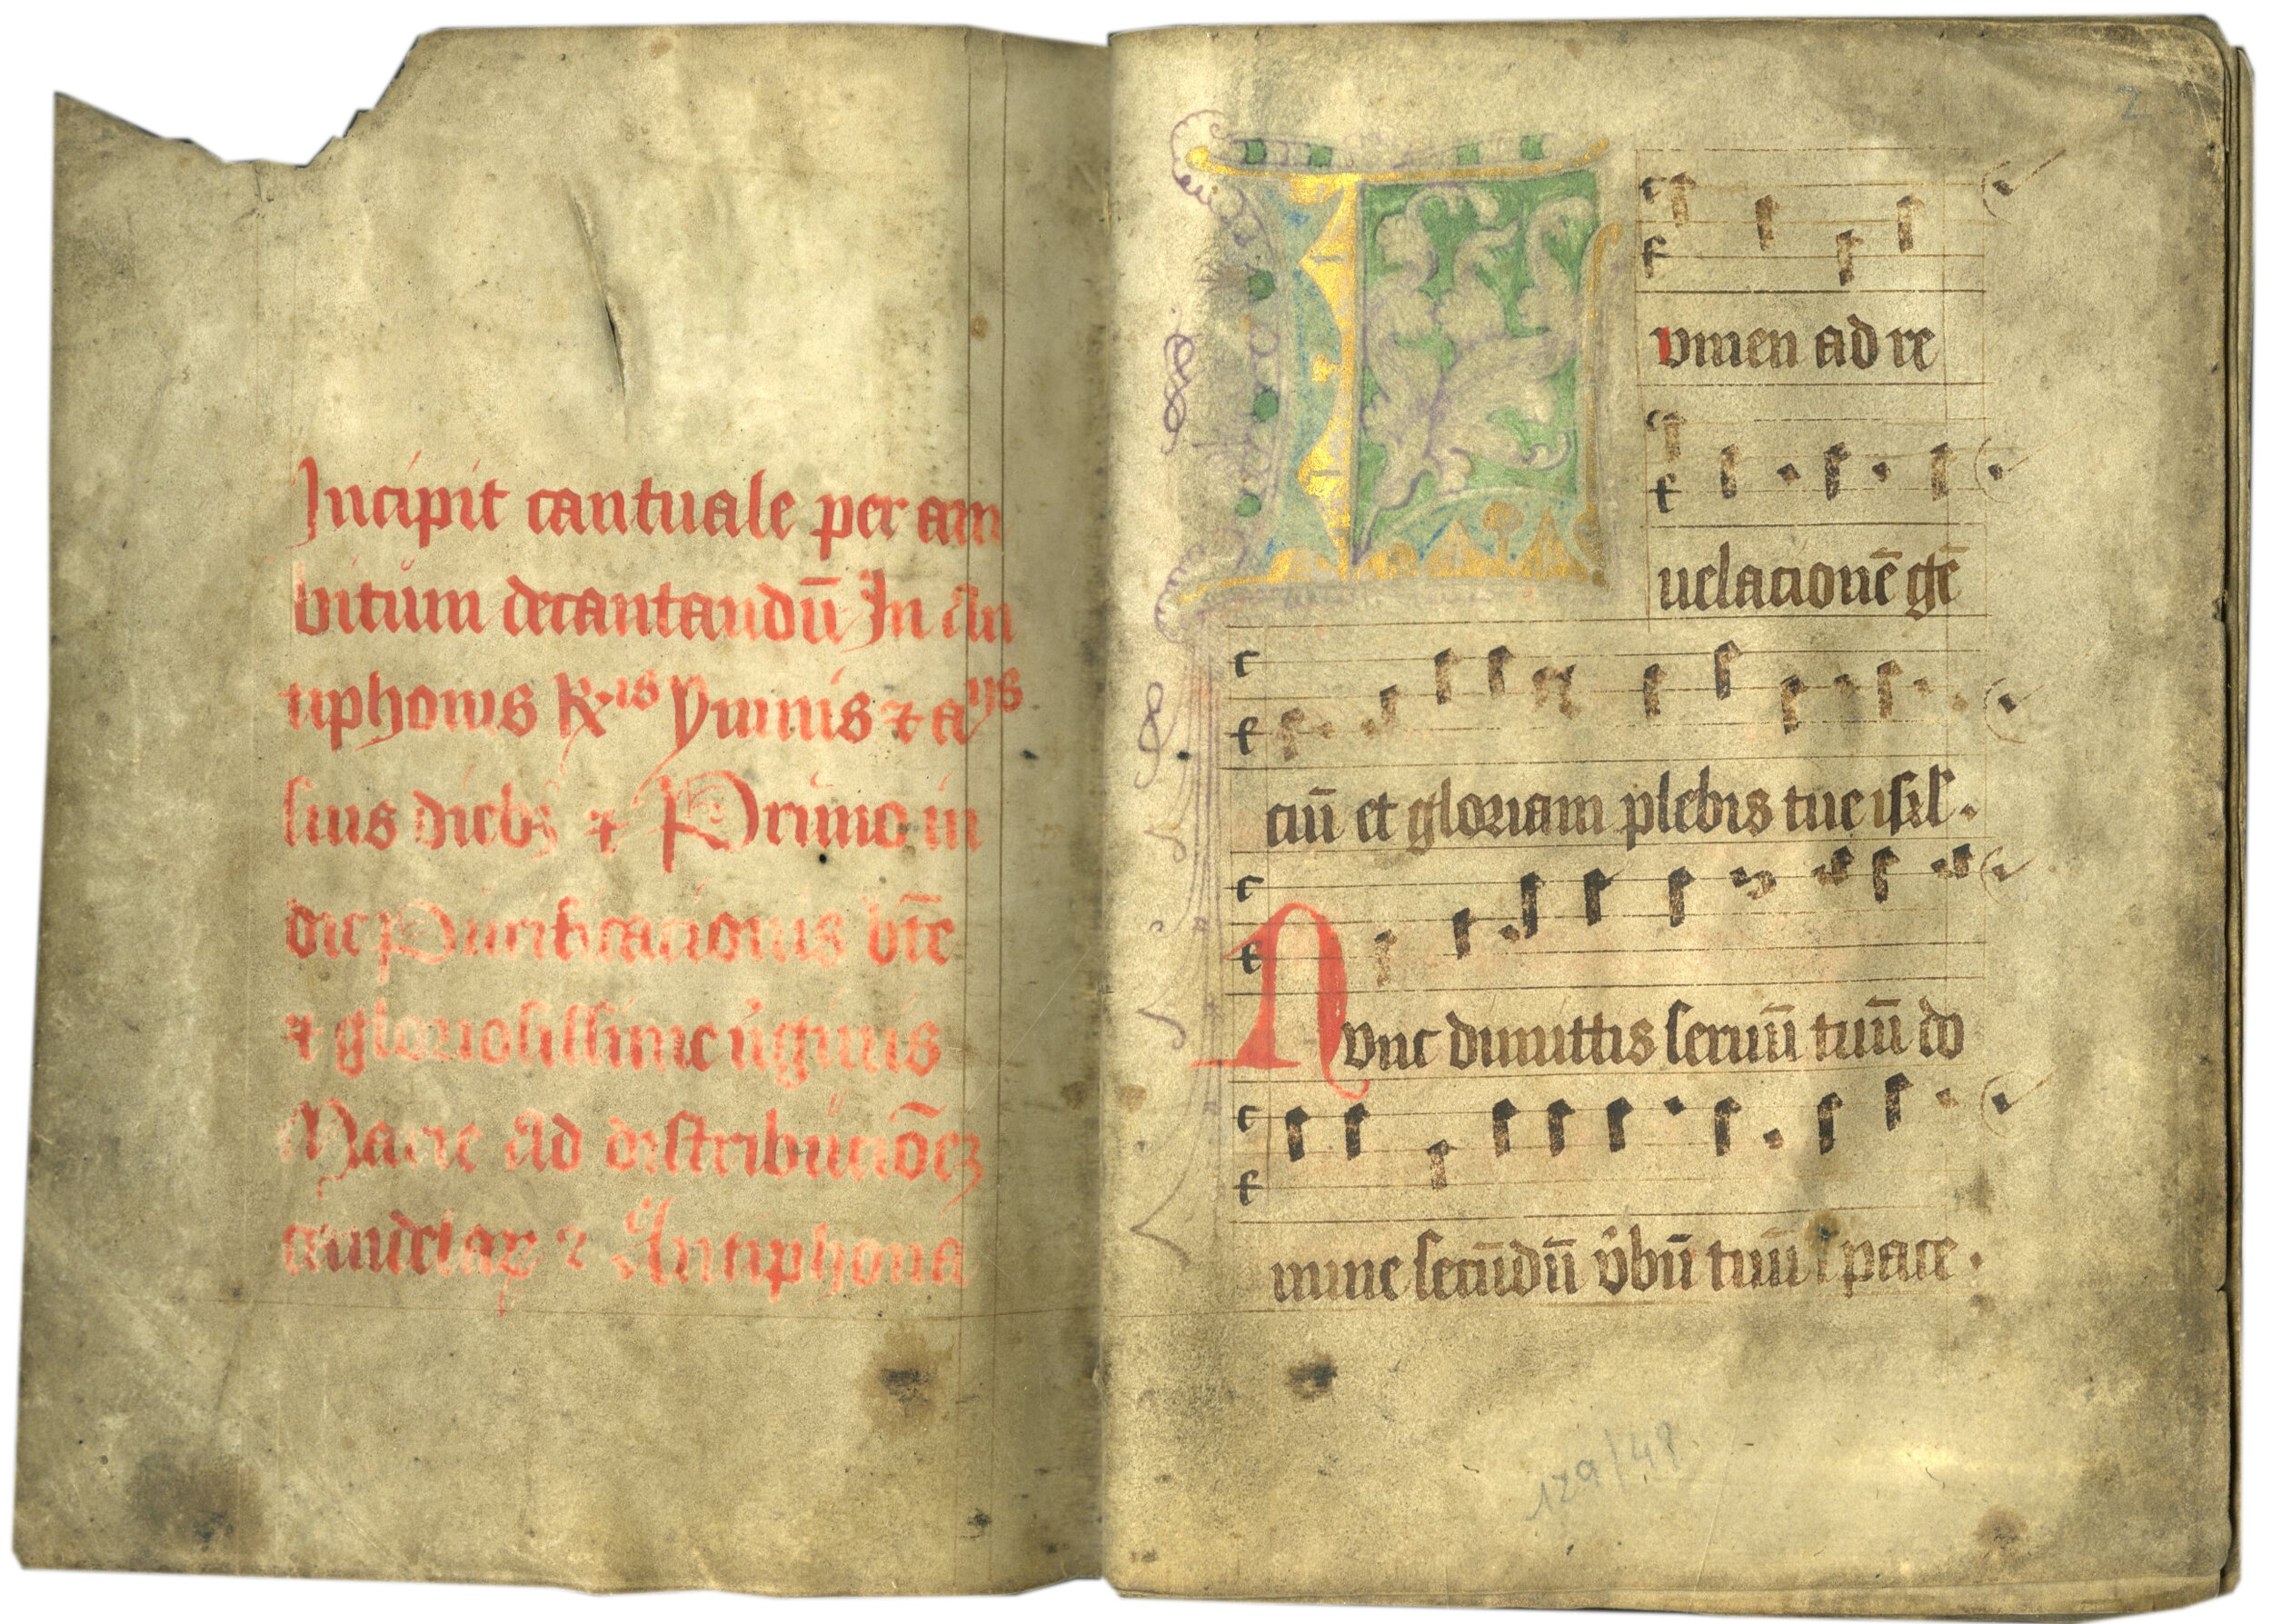 Incipit cantuale per am
bitum decantandū In an
tiphonis Ris ymnis ⁊ aijs
suis diebꝫ ⁊ Primo in
die Purificacionis bt̄e
⁊ gloriosissime v̄ginis
Marie ad distribucōeꝫ
candelaꝝ ⁊ Antiphona
2
Lvmen ad re
uelacionē gē
ciū et gloriam plebis tue isrl.
Nvnc dimittis seruū tuū do
mine secūdū v̄bū tuū ī pace.